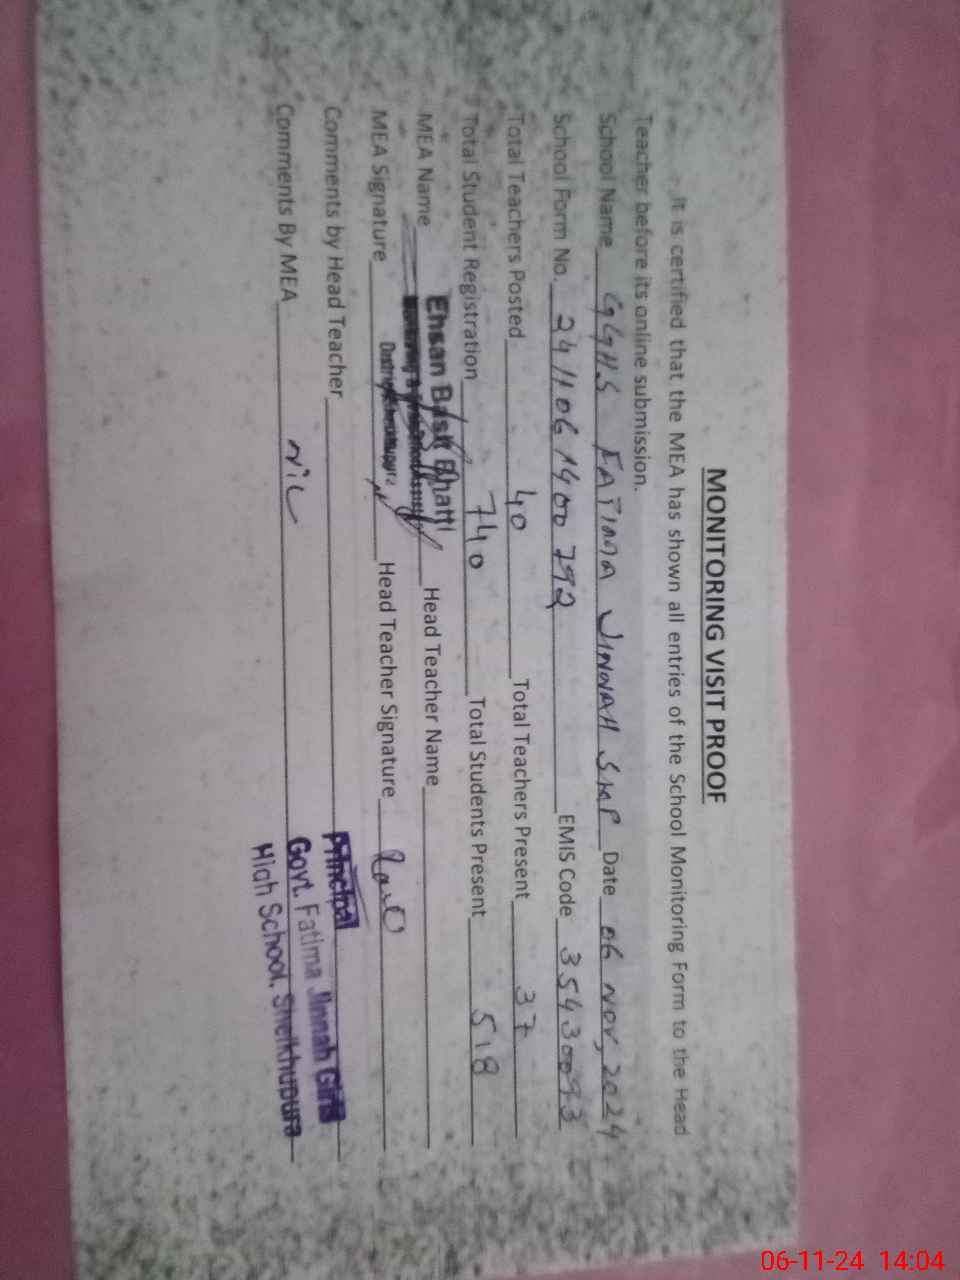 MONITORING VISIT PROOF
It is certified that the MEA has shown all entries of the School Monitoring Form to the Head
Teacher before its online submission.
School Name GGHS FATIMA JINNAH SKP Date 06 NOV, 2024
School Form No. 241106 1400 792 EMIS Code 35430093
Total Teachers Posted 40 Total Teachers Present 37
Total Student Registration 740 Total Students Present 518
MEA Name Ehsan Bhatti Head Teacher Name
MEA Signature District Sheikhupura Head Teacher Signature
Comments by Head Teacher
Principal
Govt. Fatima Jinnah Girls
High School, Sheikhupura
Comments By MEA Nil
06-11-24 14:04